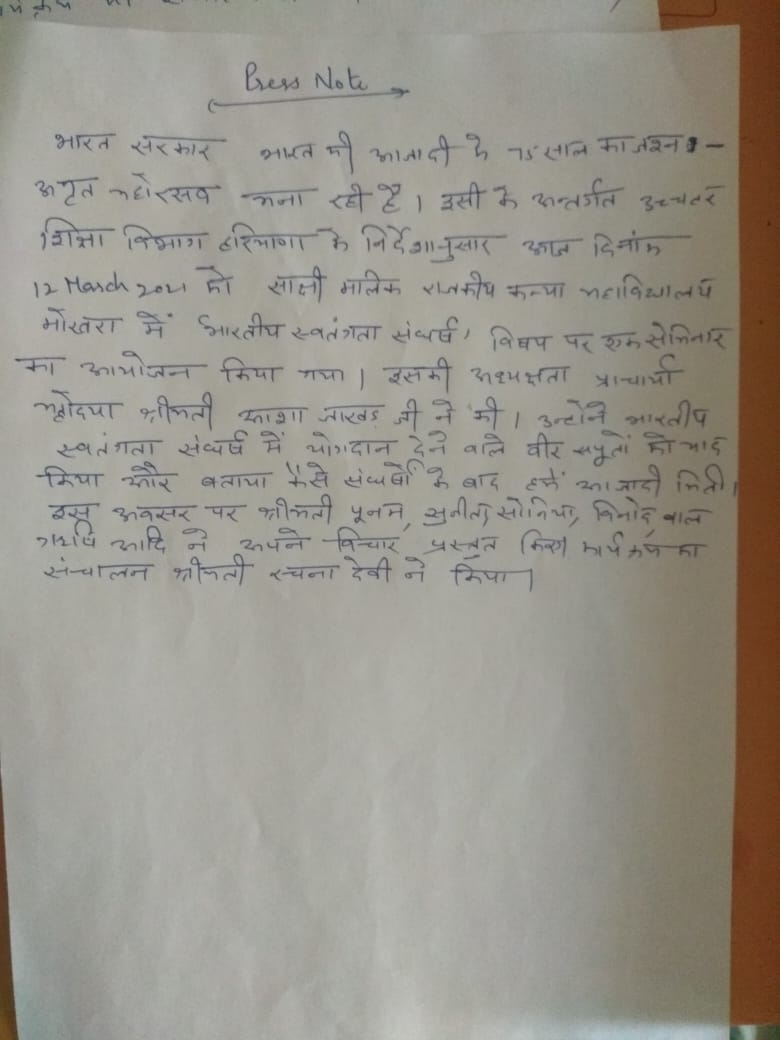 Press Note
भारत सरकार भारत की आजादी के 75 साल का जश्न -
अमृत महोत्सव मना रही है। इसी के अन्तर्गत उच्चतर
शिक्षा विभाग हरियाणा के निर्देशानुसार आज दिनांक
12 March 2021 को साक्षी मालिक राजकीय कन्या महाविद्यालय
मोखरा में 'भारतीय स्वतंत्रता संघर्ष' विषय पर एक सेमिनार
का आयोजन किया गया। इसकी अध्यक्षता प्राचार्या
महोदया श्रीमती आशा जाखड़ जी ने की। उन्होंने भारतीय
स्वतंत्रता संघर्ष में योगदान देने वाले वीर सपूतों को याद
किया और बताया कैसे संघर्षों के बाद हमें आजादी मिली।
इस अवसर पर श्रीमती पूनम, सुनीता, सोनिया, विनोद, बाल
आदि ने अपने विचार प्रस्तुत किए। कार्यक्रम का
संचालन श्रीमती रचना देवी ने किया।